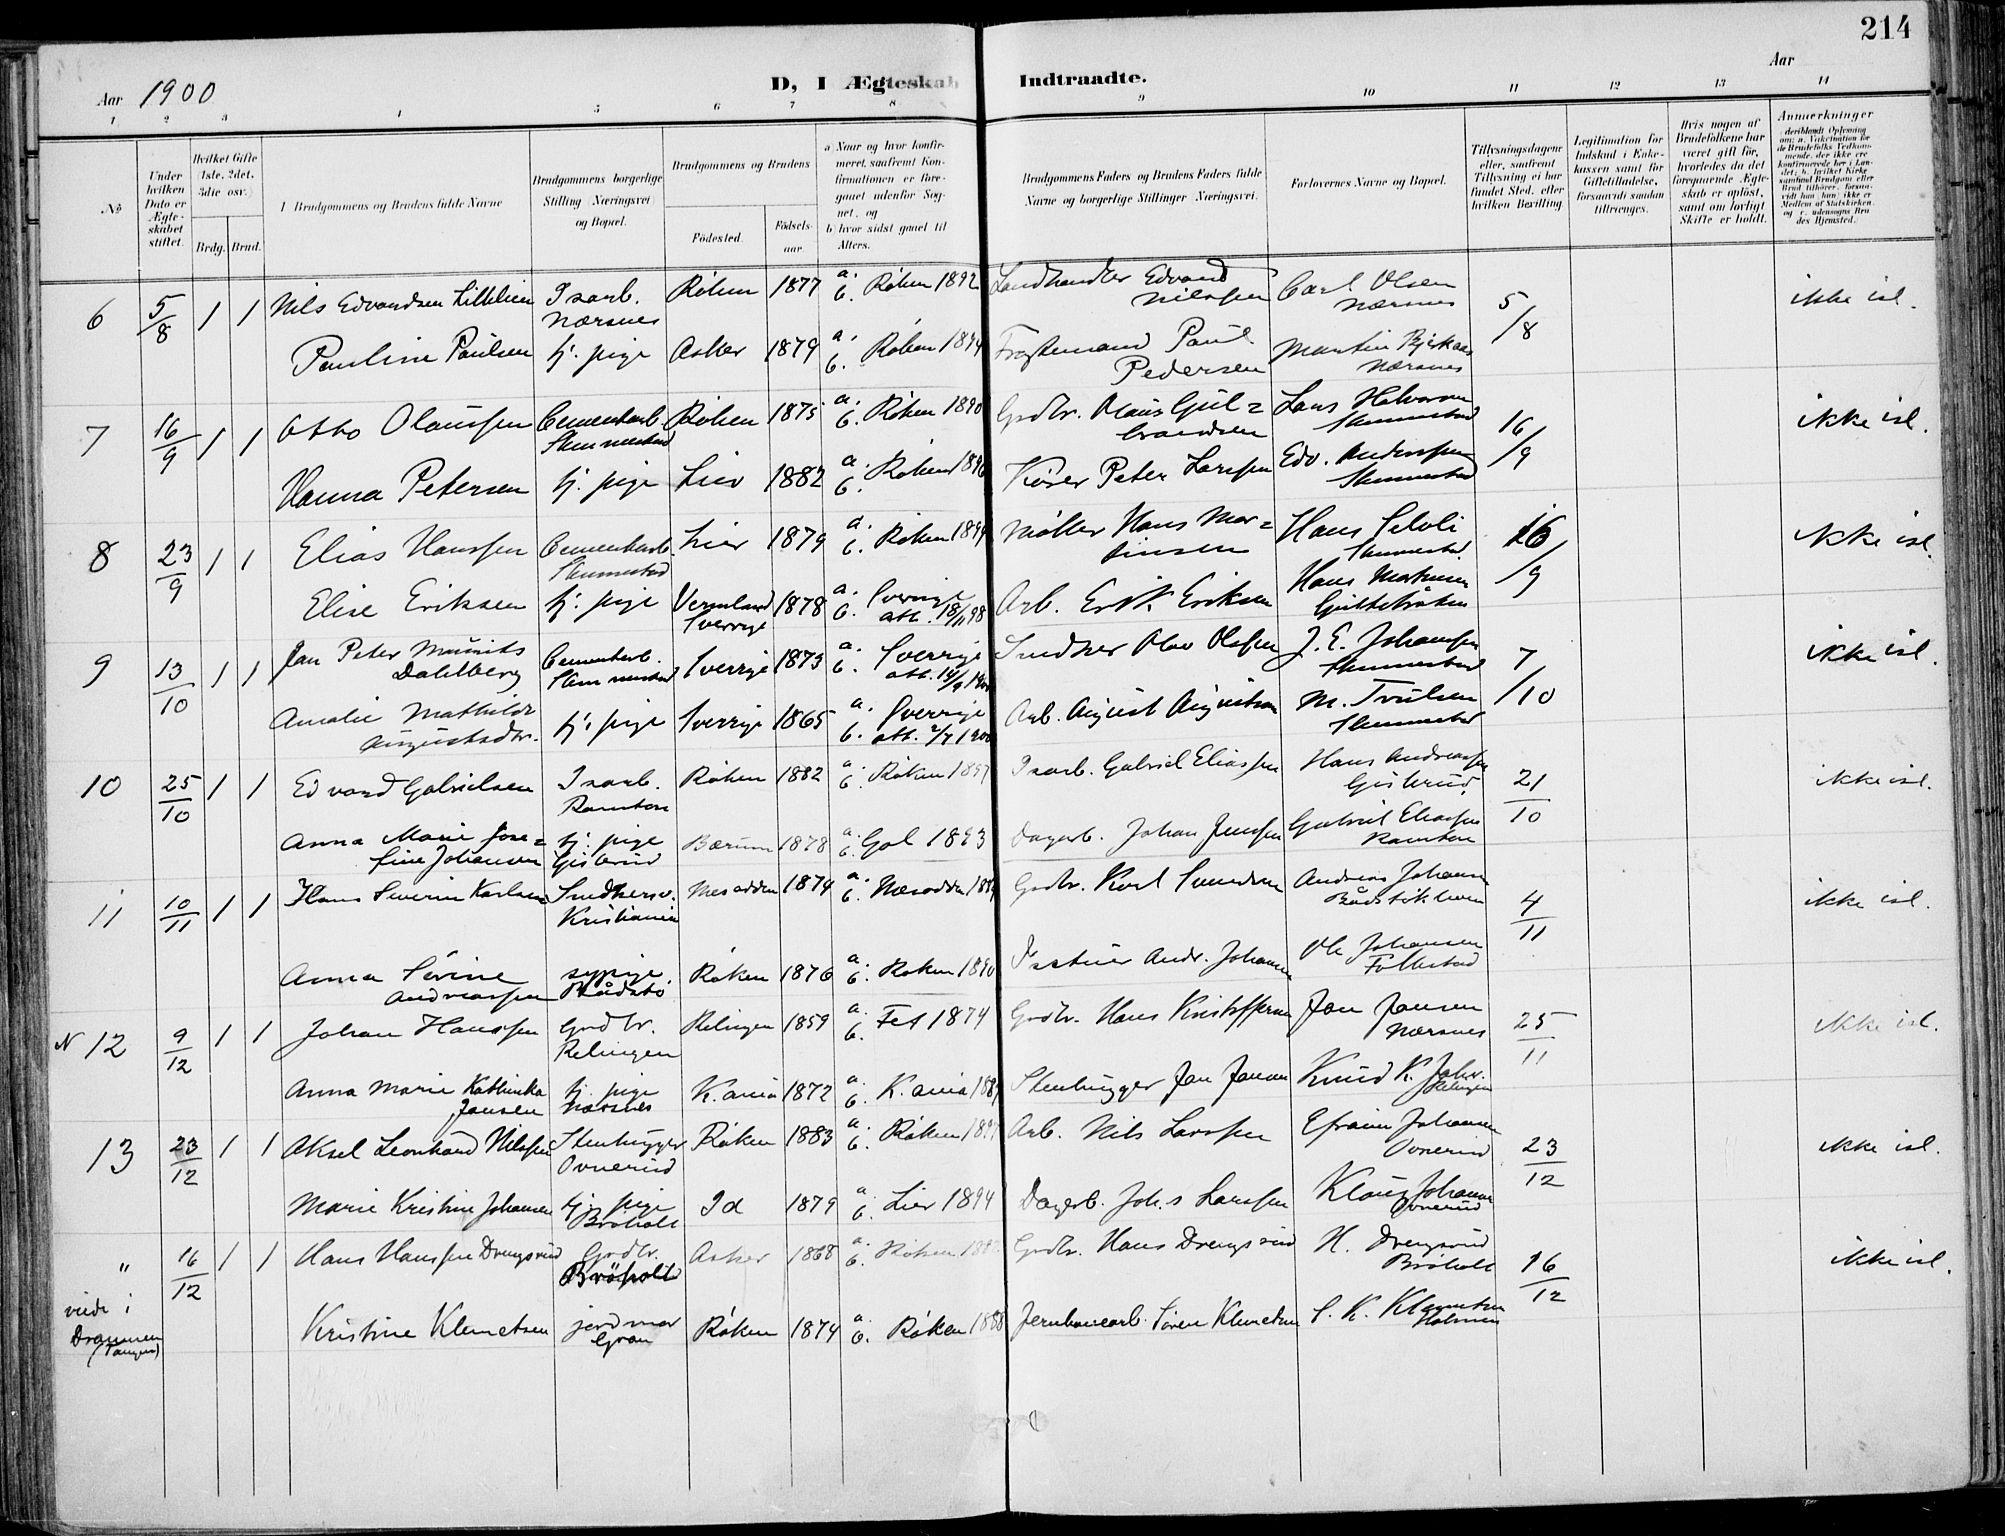 214
Aar 1900
D, I Ægteskab Indtraadte.
Aar
1 2 3 4 5 6 7 8 9 10 11 12 13 14
No
Under hvilken Dato er Ægteskabet stiftet.
Hvilket Gifte (1ste, 2det, 3die osv.)
Brdg. Brud.
Brudgommens og Brudens fulde Navne
Brudgommens borgerlige Stilling Næringsvei og Bopæl.
Brudgommens og Brudens
Fødested. Fødselsaar.
a Naar og hvor konfirmeret, saafremt Konfirmationen er foregaaet udenfor Sognet, og
b hvor sidst gaaet til Alters.
Brudgommens Faders og Brudens Faders fulde Navne og borgerlige Stillinger Næringsvei.
Forlovernes Navne og Bopæl.
Tillysningsdagene eller, saafremt Tillysning ei har fundet Sted, efter hvilken Bevilling.
Legitimation for Indskud i Enkekassen samt for Giftetilladelse, forsaavidt saadan tiltrænges.
Hvis nogen af Brudefolkene har været gift før, hvorledes da det foregaaende Ægteskab er opløst, samt om lovligt Skifte er holdt.
Anmærkninger
6 5/8 1 1 Nils Edvardsen Lillelien Isarb. Nærsnes Røken 1877 a. b. Røken 1892 Landhandler Edvard Nilssen Carl Olsen Nærsnes 5/8 ikke isl.
Pauline Paulsen tj. pige Asker 1879 a. b. Røken 1894 Paul Pedersen Martin Nærsnes
7 16/9 1 1 Otto Olaussen Cementarb. Slemmestad Røken 1875 a. b. Røken 1890 Grdbr. Olaus Gulbrandsen Lars Halvorsen Slemmestad 16/9 ikke isl.
Hanna Petersen tj. pige Lier 1882 a. b. Røken 1896 Peter Larssen Edv. Anderssen Slemmestad
8 23/9 1 1 Elias Hanssen Cementarb. Slemmestad Lier 1879 a. b. Røken 1894 Møller Hans Martinsen Hans Slemmestad 16/9 ikke isl.
Elise Eriksen tj. pige Vermland Sverrige 1878 a. b. Sverrige att. 18/11 98 Arb. Erik Eriksen Hans
9 13/10 1 1 Jan Peter Mauritz Dahlberg Cementarb. Slemmestad Sverrige 1873 a. b. Sverrige Olov Olofsen J. E. Johanssen Slemmestad 7/10 ikke isl.
Amalie Mathilde Augustsdtr. tj. pige Sverrige 1865 a. b. Sverrige att. 2/7 1900 Arb. August Augustson M. Trulsen Slemmestad
10 25/10 1 1 Edvard Gabrielsen Isarb. Ramton Røken 1882 a. b. Røken 1897 Isarb. Gabriel Eliassen Hans Andreassen Gisterud 21/10 ikke isl.
Anna Marie Josefine Johansen tj. pige Gisterud Bærum 1878 a. b. Gol 1893 Dagarb. Johan Jenssen Gabriel Eliassen Ramton
11 10/11 1 1 Hans Severin Karlsen Smedsersv. Kristiania Nesodden 1874 a. b. Næsodden Grdbr. Karl Svendsen Andreas Johansen 4/11 ikke isl.
Anna Sørine Andreassen sypige Røken 1876 a. b. Røken 1890 Andr. Johansen Ole Johansen Follestad
N 12 9/12 1 1 Johan Hanssen Grdbr. Relingen Relingen 1859 a. b. Fet 1874 Grdbr. Hans Kristoffersen Jan Jansen Nærsnes 25/11 ikke isl.
Anna Marie Kathinka Jansen tj. pige Nærsnes K.ania 1872 a. b. K.ania Stenhugger Jan Jansen Knud K. Relingen
13 23/12 1 1 Aksel Leonhard Nilssen Stenhugger Ovnerud Røken 1883 a. b. Røken 1897 Arb. Nils Larssen Efraim Johansen Ovnerud 23/12 ikke isl.
Marie Kristine Johansen tj. pige Brøholt Id 1879 a. b. Lier 1894 Dagarb. Johs Larssen Klaus Johansen Ovnerud
" 16/12 1 1 Hans Hanssen Drengsrud Grdbr. Brøholt Asker 1868 a. b. Røken Grdbr. Hans Drengsrud H. Drengsrud Brøholt 16/12 ikke isl.
viede i Drammen (Tangen)
Kristine Klemetsen jordmor Gran Røken 1874 a. b. Røken 1888 Jernbanearb. Søren Klemetsen S. K. Klemetsen Holmen